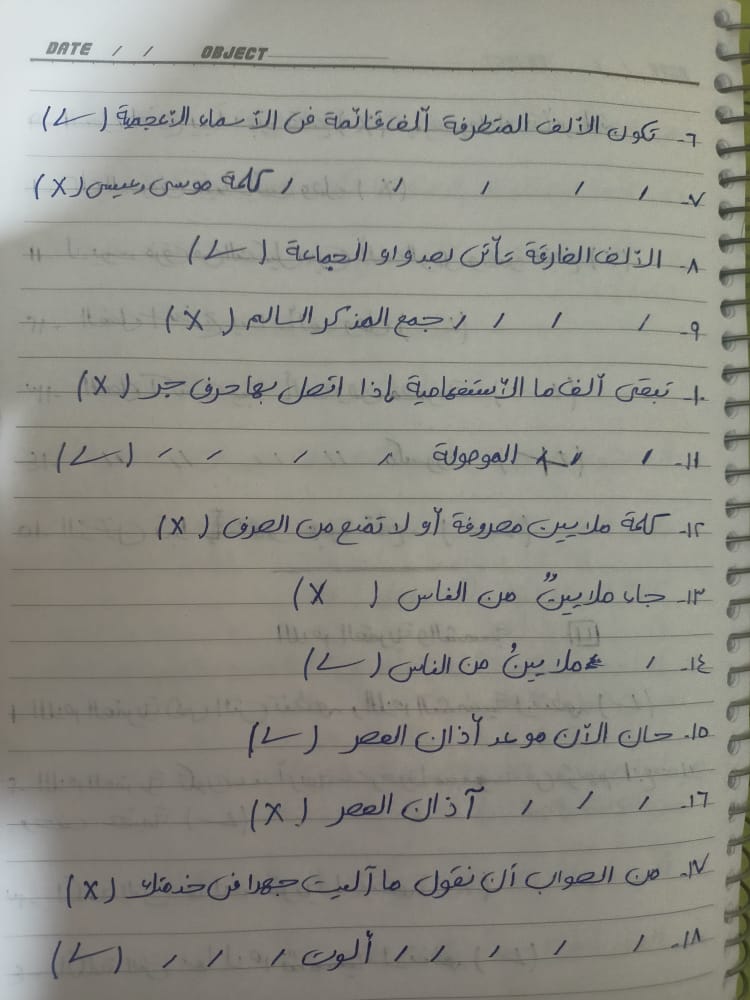 DATE / / OBJECT
٦- تكون الألف المتطرفة ألف قائمة في الأسماء الأعجمية (✓)
٧- / / / / / كلمة موسى وعيسى (X)
٨- الألف الفارقة تأتي بعد واو الجماعة (✓)
٩- / / / / جمع المذكر السالم (X)
١٠- تبقى ألف ما الأستفهامية إذا اتصل بها حرف جر (X)
١١- / / / الموصولة / / / / (✓)
١٢- كلمة ملايين مصروفة أو لا تمنع من الصرف (X)
١٣- جاء ملايينٌ من الناس (X)
١٤- / ملايينُ من الناس (✓)
١٥- حان الآن موعد أذان العصر (✓)
١٦- / / / آذان العصر (X)
١٧- من الصواب أن نقول ما آليت جهدا في خدمتك (X)
١٨- / / / / / ألوت / / / (✓)